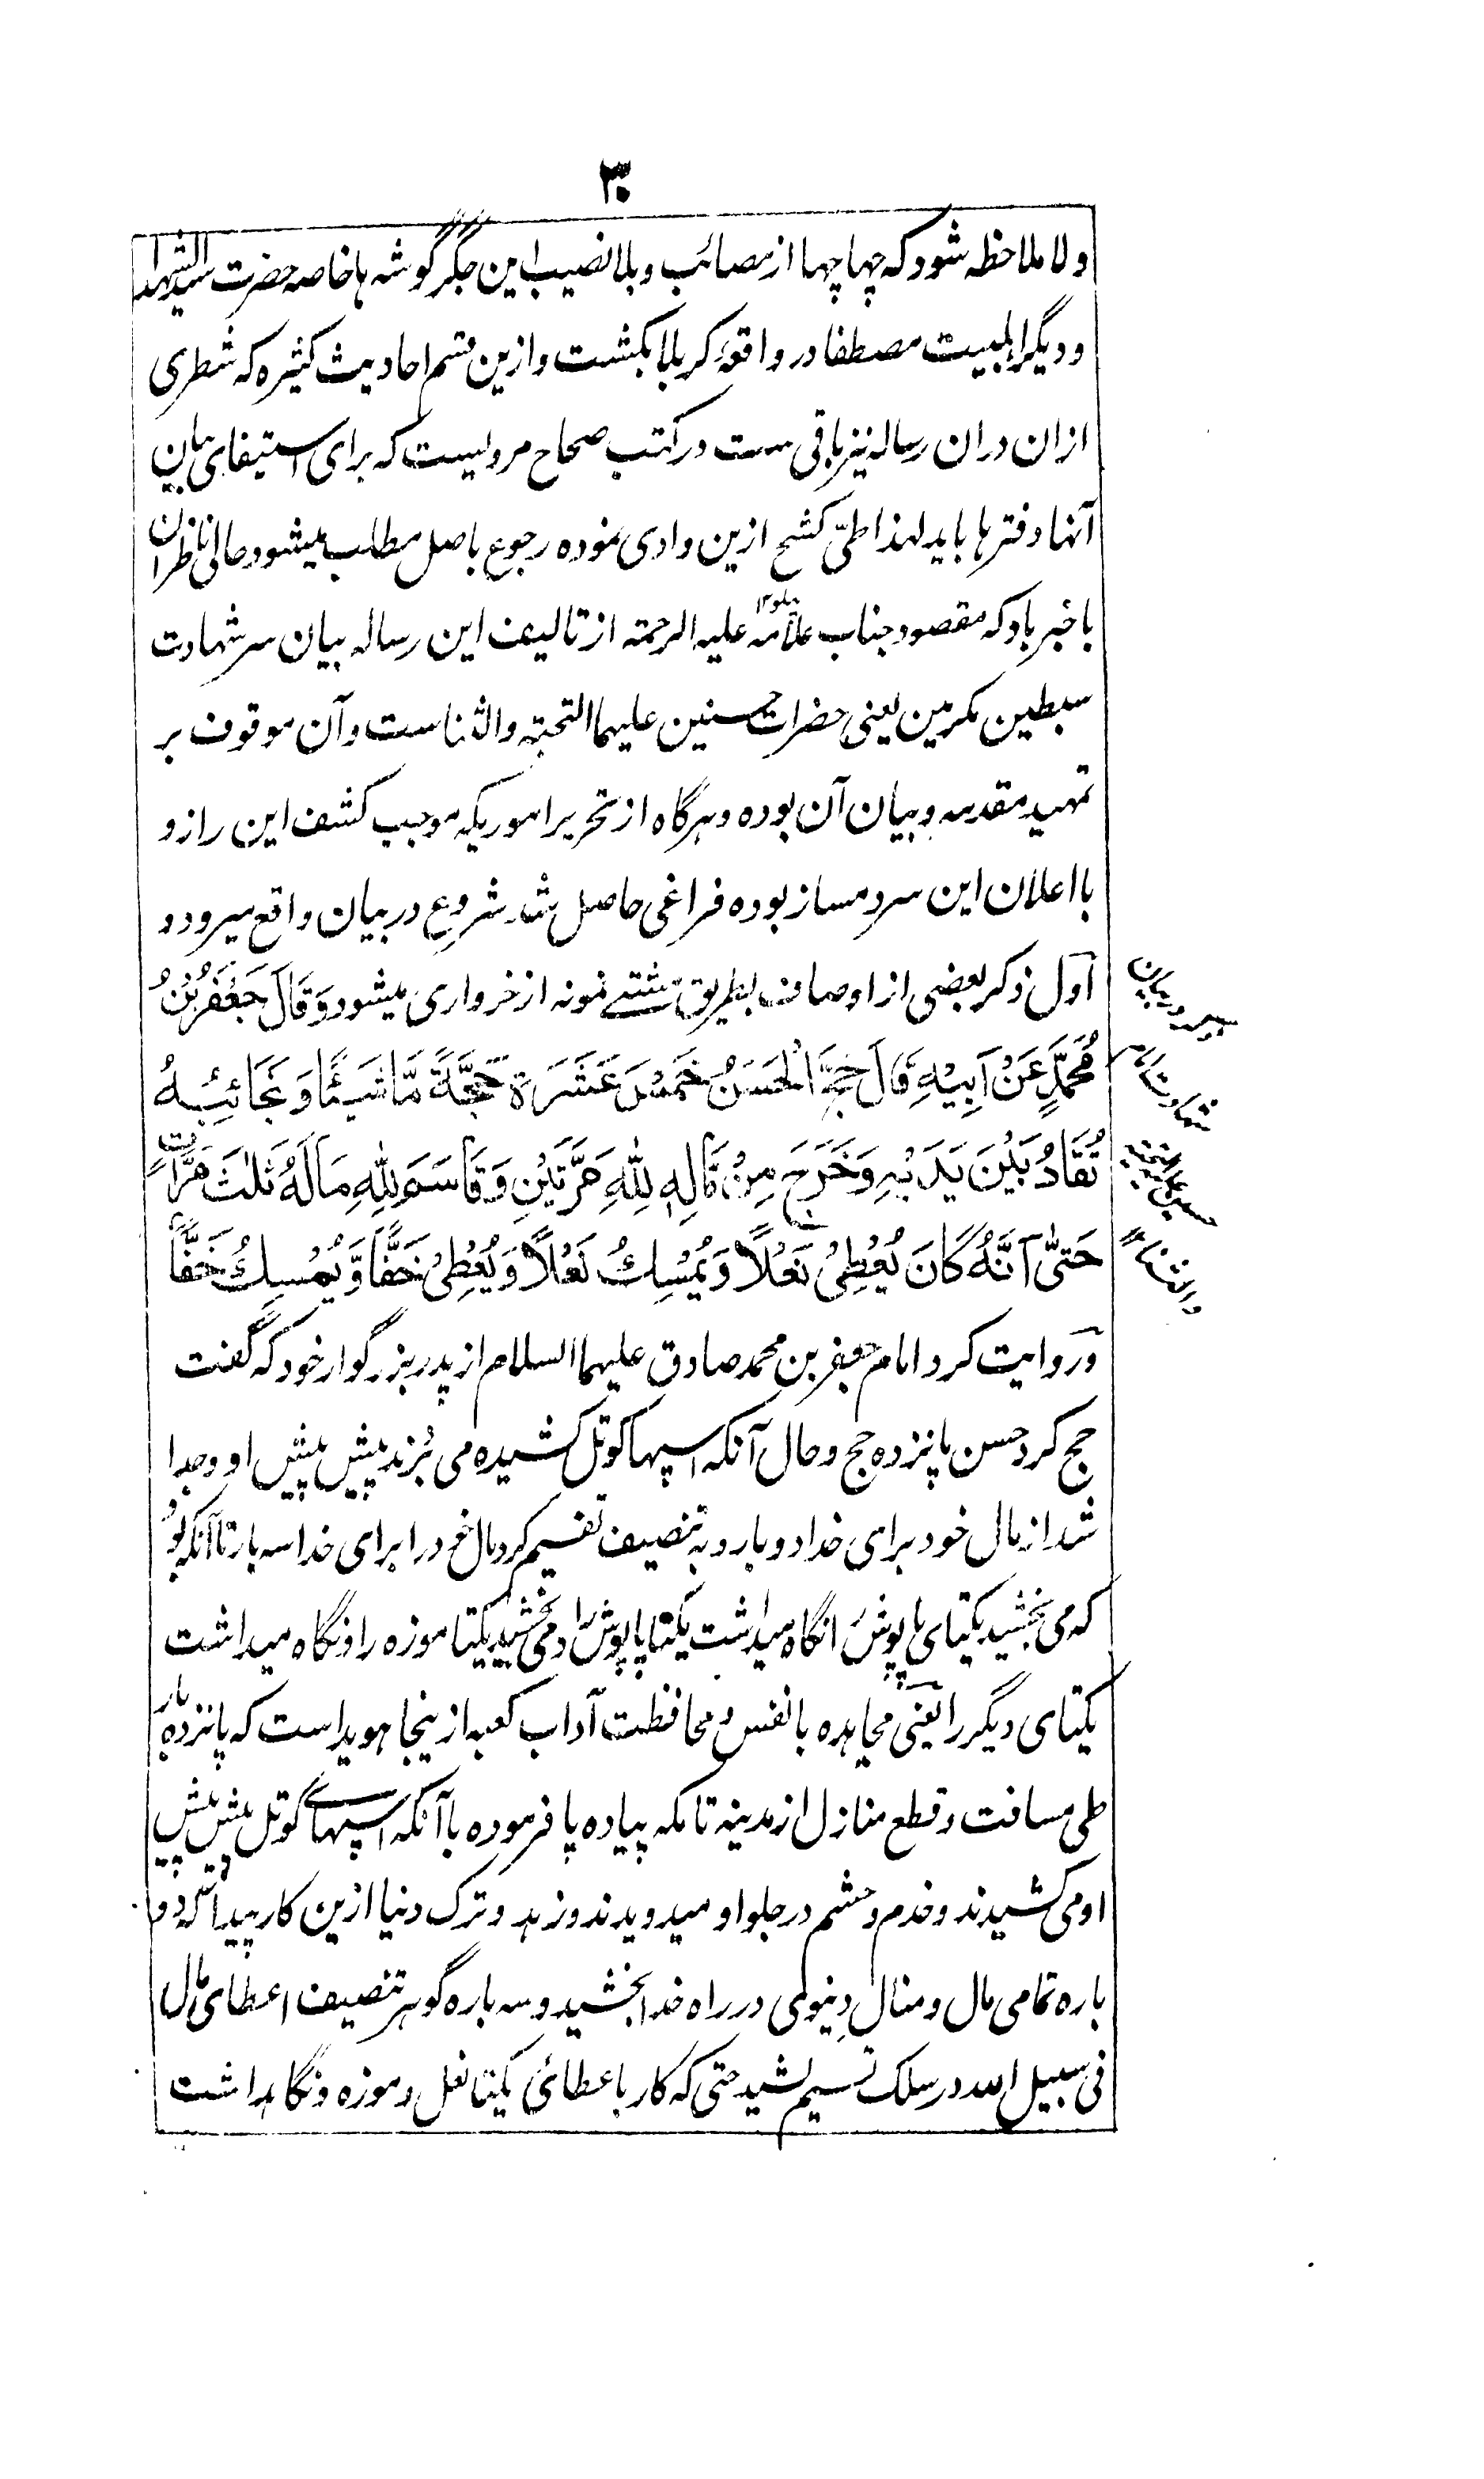 ۳۰
ولا ملاحظه شود که چها چها از مصائب و بلا نصیب این جگر گوشه ها خاصه حضرت سید الشهدا
و دیگر اهلبیت مصطفا در واقعۀ کربلا بگشت و ازین قسم احادیث کثیره که شطری
ازان دران رساله نیز باقی ست در کتب صحاح مرویست که برای استیفای بیان
آنها دفترها باید لهذا طیّ کشح ازین وادی نموده رجوع باصل مطلب میشود حالی ناظران
باخبر باد که مقصود جناب علامه علیه الرحمته از تالیف این رساله بیان سر شهادت
سبطین مکرمین یعنی حضرات حسنین علیهما التحیته والثناست و آن موقوف بر
تمهید مقدمه و بیان آن بوده و هرگاه از تحریر اموریکه موجب کشف این راز و
با اعلان این سر دمساز بوده فراغی حاصل شد شروع در بیان واقع میرود و
اول ذکر بعضی از اوصاف بطریق مشتے نمونه از خرواری میشود وَقَالَ جَعْفَرُ بْنُ
مُحَمَّدٍ عَنْ اَبِیْهِ قَالَ حَجَّ الْحَسَنُ خَمْسَ عَشَرَةَ حَجَّةً مَّاشِیًا وَنَجَائِبُهُ
تُقَادُ بَیْنَ یَدَیْهِ وَخَرَجَ مِنْ مَالِهِ لِلّٰهِ مَرَّتَیْنِ وَقَاسَمَ لِلّٰهِ مَالَهُ ثَلٰثَ مَرَّاتٍ
حَتّٰی اَنَّهُ کَانَ یُعْطِیْ نَعْلًا وَیُمْسِكُ نَعْلًا وَیُعْطِیْ خَفًّا وَّیُمْسِكُ خَفًّا
و روایت کرد امام جعفر بن محمد صادق علیهما السلام از پدر بزرگوار خود که گفت
حج کرد حسن پانزده حج و حال آنکه اسپها کوتل کشیده می بُرند پیش پیش او و جدا
شد از مال خود برای خدا دو بار و به تنصیف تقسیم کرد مال خود را برای خدا سه بار تا آنکه بود
که می بخشید یکتای پاپوش را نگاه میداشت یکتا پاپوش را و می بخشید یکتا موزه را و نگاه میداشت
یکتای دیگر را یعنی مجاهده با نفس و محافظت آداب کعبه ازینجا هویداست که پانزده بار
طی مسافت و قطع منازل از مدینه تا مکه پیاده پا فرموده با آنکه اسپهاے کوتل پیش پیش
او می کشیدند و خدم و حشم در جلو او میدویدند و زهد و ترک دنیا ازین کار پیدا که دو
باره تمامی مال و منال دِنیوی در راه خدا بخشید و سه باره گوهر تنصیف اعطای مال
فی سبیل الله در سلک تقسیم کشید حتی که کار با عطائ یکتا نعل و موزه و نگاهداشت
میرود بیان
شهادت امام
حسین علیه التحیته
والثناء